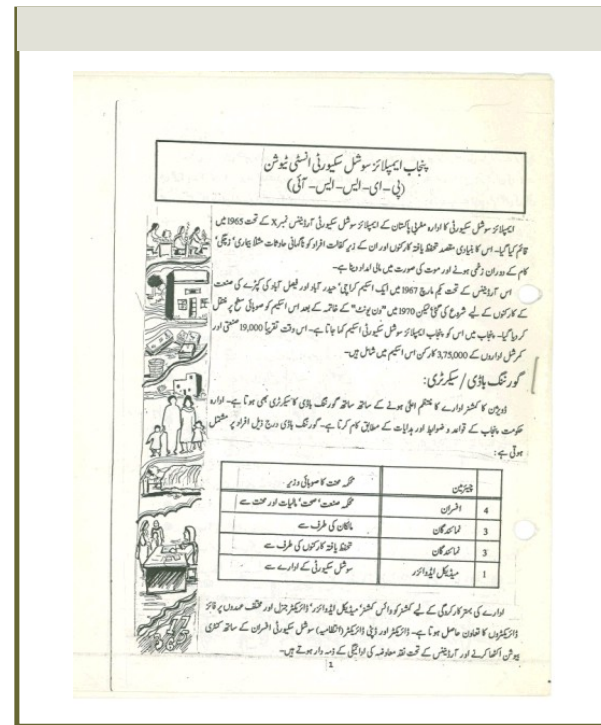 پنجاب ایمپلائز سوشل سکیورٹی انسٹی ٹیوشن
(پی-ای-ایس-ایس-آئی)
ایمپلائز سوشل سکیورٹی کا ادارہ مغربی پاکستان کے ایمپلائز سوشل سکیورٹی آرڈیننس نمبر X کے تحت 1965 میں
قائم کیا گیا۔ اس کا بنیادی مقصد تحفظ یافتہ کارکنوں اور ان کے زیر کفالت افراد کو ناگہانی حادثات مثلاً بیماری، زچگی،
کام کے دوران زخمی ہونے اور موت کی صورت میں مالی امداد دینا ہے۔
اس آرڈیننس کے تحت یکم مارچ 1967 میں ایک اسکیم کراچی، حیدر آباد اور فیصل آباد کی کپڑے کی صنعت
کے کارکنوں کے لیے شروع کی گئی لیکن 1970 میں "ون یونٹ" کے خاتمہ کے بعد اس اسکیم کو صوبائی سطح پر منتقل
کر دیا گیا۔ پنجاب میں اس کو پنجاب ایمپلائز سوشل سکیورٹی اسکیم کہا جاتا ہے۔ اس وقت تقریباً 19,000 صنعتی اور
کمرشل اداروں کے 3,75,000 کارکن اس اسکیم میں شامل ہیں۔
گورننگ باڈی / سیکرٹری:
ڈویژن کا کمشنر ادارے کا منتظم اعلیٰ ہونے کے ساتھ ساتھ گورننگ باڈی کا سیکرٹری بھی ہوتا ہے۔ ادارہ
حکومت پنجاب کے قواعد و ضوابط اور ہدایات کے مطابق کام کرتا ہے۔ گورننگ باڈی درج ذیل افراد پر مشتمل
ہوتی ہے:
چیئرمین محکمہ محنت کا صوبائی وزیر
4 افسران محکمہ صنعت، صحت، مالیات اور محنت سے
3 نمائندگان مالکان کی طرف سے
3 نمائندگان تحفظ یافتہ کارکنوں کی طرف سے
1 میڈیکل ایڈوائزر سوشل سکیورٹی کے ادارے سے
ادارے کی بہتر کارکردگی کے لیے کمشنر کو وائس کمشنر، میڈیکل ایڈوائزر، ڈائریکٹر جنرل اور مختلف عہدوں پر فائز
ڈائریکٹروں کا تعاون حاصل ہوتا ہے۔ ڈائریکٹر اور ڈپٹی ڈائریکٹر (انتظامیہ) سوشل سکیورٹی افسران کے ساتھ کنٹری
بیوشن اکٹھا کرنے اور آرڈیننس کے تحت نقد معاوضہ کی ادائیگی کے ذمہ دار ہوتے ہیں۔
1